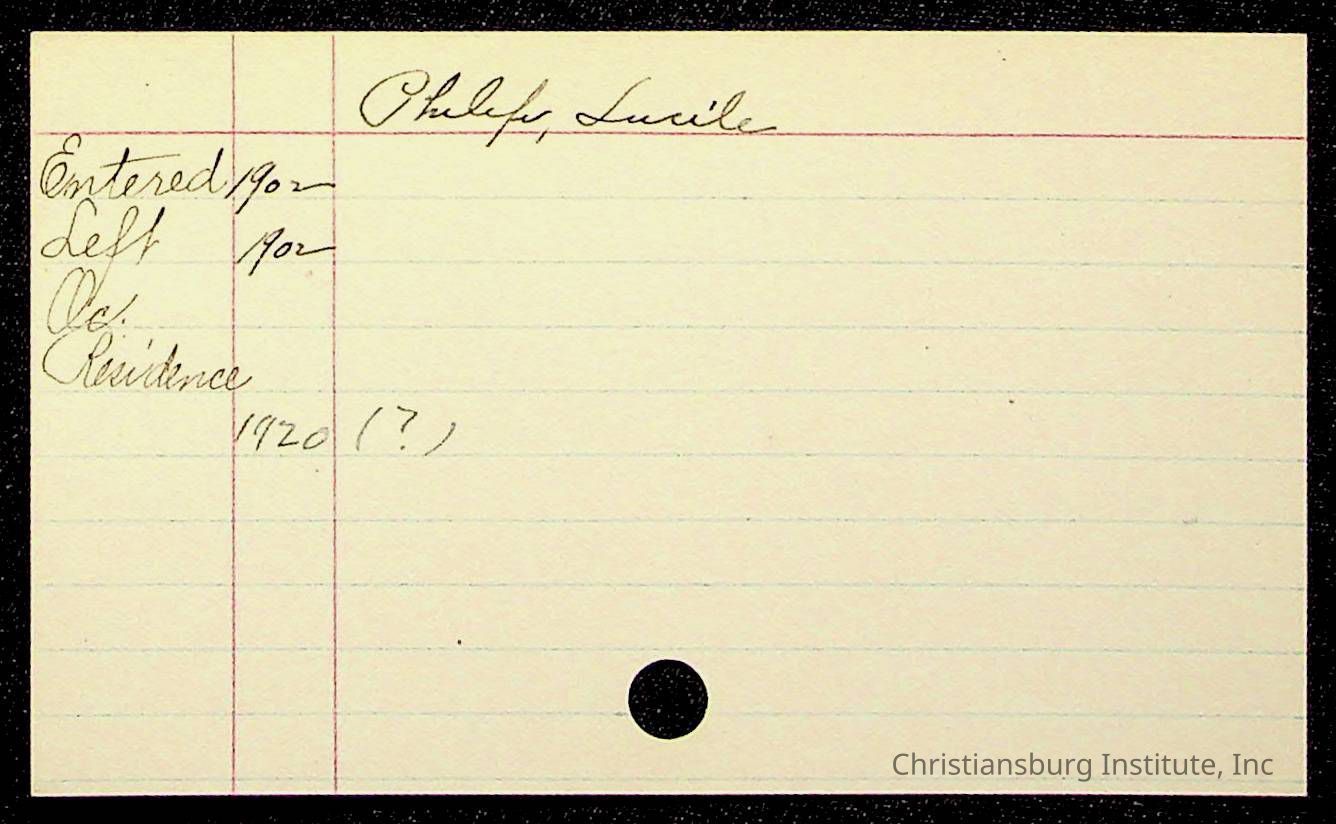 Philips, Lucile
Entered 1902
Left 1902
Oc.
Residence
1920 (?)
Christiansburg Institute, Inc